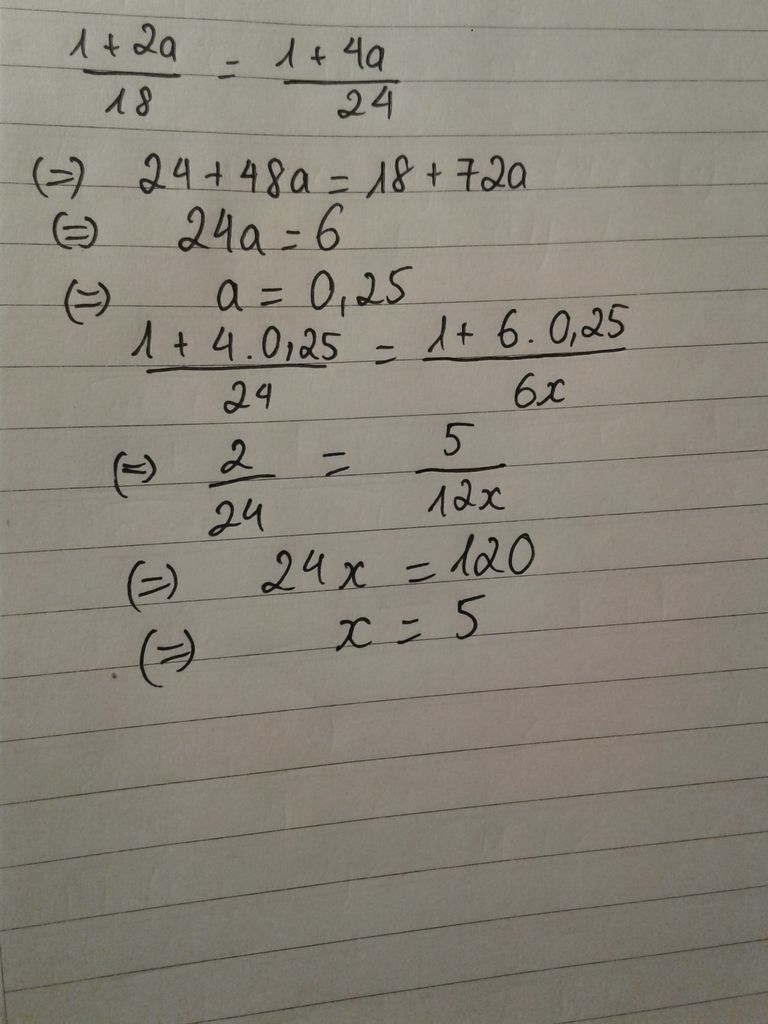 (1 + 2a)/18 = (1 + 4a)/24
(=) 24 + 48a = 18 + 72a
(=) 24a = 6
(=) a = 0,25
(1 + 4 . 0,25)/24 = (1 + 6 . 0,25)/6x
(=) 2/24 = 5/12x
(=) 24x = 120
(=) x = 5